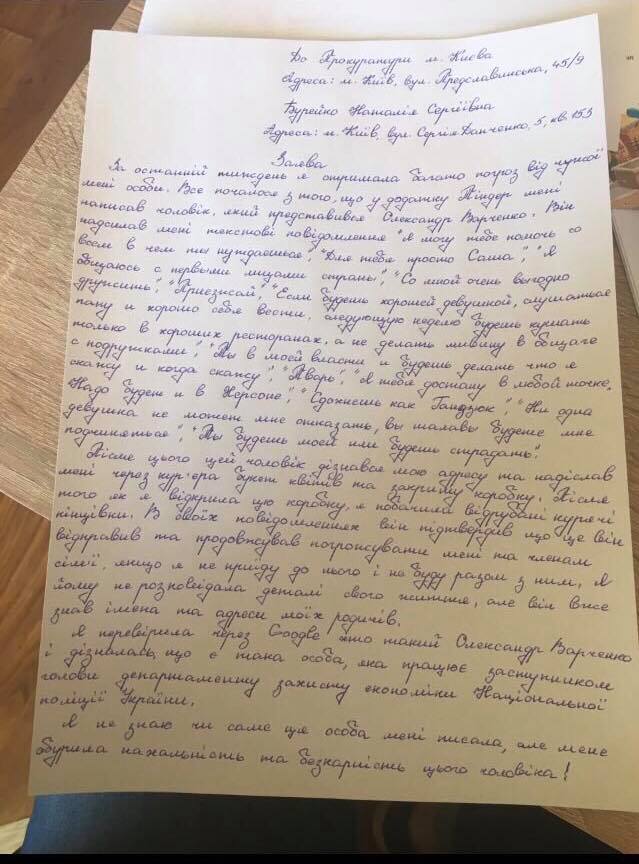 До Прокуратури м. Києва
Адреса: м. Київ, вул. Предславинська, 45/9
Бурейко Наталія Сергіївна
Адреса: м. Київ, вул. Сергія Данченко, 5, кв. 153
Заява
За останній тиждень я отримала багато погроз від чужої
мені особи. Все почалося з того, що у додатку Тіндер мені
написав чоловік, який представився Олександр Варченко. Він
надсилав мені текстові повідомлення "Я могу тебе помочь со
всем в чем ты нуждаешься", "Для тебя просто Саша", "Я
общаюсь с первыми лицами страны", "Со мной очень выгодно
дружить", "Приезжай", "Если будешь хорошей девушкой, слушаться
папу и хорошо себя вести, следующую неделю будешь кушать
только в хороших ресторанах, а не делать мивину в общаге
с подружками", "Ты в моей власти и будешь делать что я
скажу и когда скажу", "Тварь", "Я тебя достану в любой точке.
Надо будет и в Херсоне", "Сдохнешь как Гандзюк", "Ни одна
девушка не может мне отказать, вы шалавы будете мне
подчиняться", "Ты будешь моей или будешь страдать".
Після цього цей чоловік дізнався мою адресу та надіслав
мені через кур'єра букет квітів та закриту коробку. Після
того як я відкрила цю коробку, я побачила відрубані курячі
кінцівки. В своїх повідомленнях він підтвердив що це він
відправив та продовжував погрожувати мені та членам
сім'ї, якщо я не приїду до нього і не буду разом з ним. Я
йому не розповідала деталі свого життя, але він вже
знав імена та адреси моїх родичів.
Я перевірила через Google хто такий Олександр Варченко
і дізналась, що є така особа, яка працює заступником
голови департаменту захисту економіки Національної
поліції України.
Я не знаю чи саме ця особа мені писала, але мене
обурила нахабність та безкарність цього чоловіка!